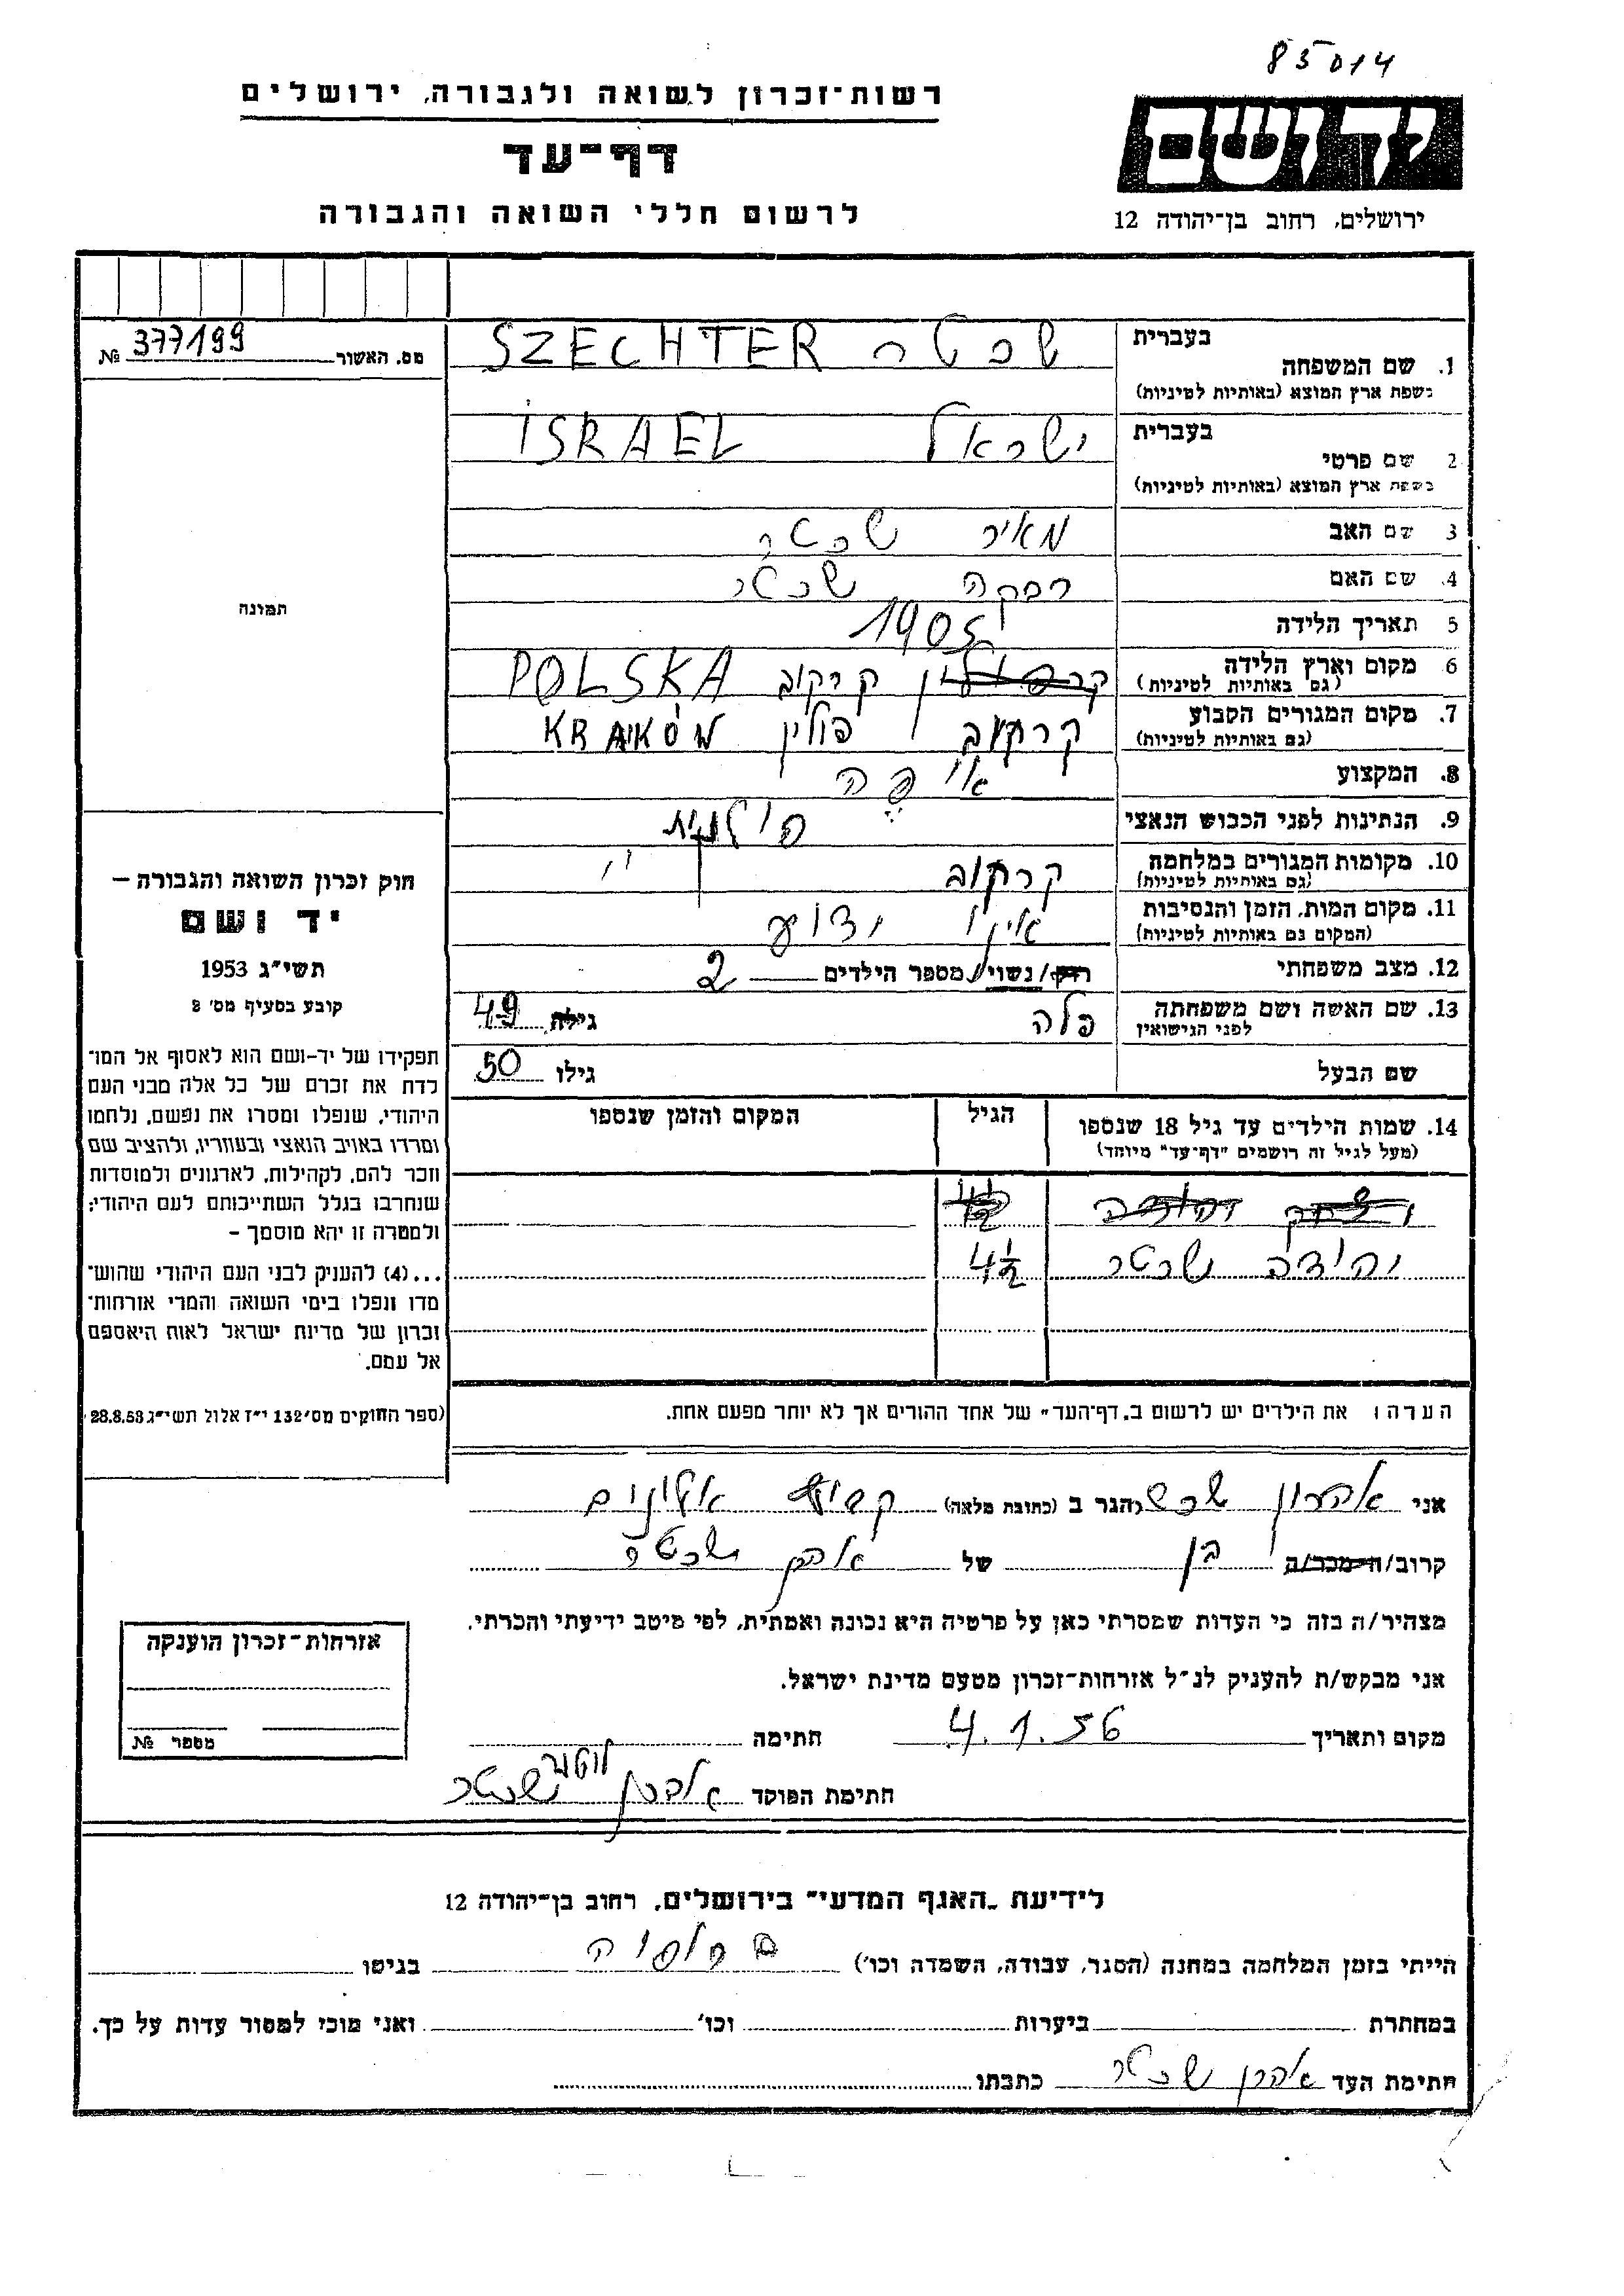 85014
רשות־זכרון לשואה ולגבורה, ירושלים
דף־עד
לרשום חללי השואה והגבורה
יד ושם
ירושלים, רחוב בן־יהודה 12
מס. האשור 377199 №
תמונה
בעברית
1. שם המשפחה שכטר SZECHTER
בשפת ארץ המוצא (באותיות לטיניות)
בעברית
2 שם פרטי ישראל ISRAEL
בשפת ארץ המוצא (באותיות לטיניות)
3 שם האב מאיר שכטר
4. שם האם רבקה שכטר
5 תאריך הלידה 1905
6 מקום וארץ הלידה קרקוב POLSKA
(גם באותיות לטיניות)
7. מקום המגורים הקבוע קרקוב פולין
(גם באותיות לטיניות)
8. המקצוע אופה
9. הנתינות לפני הכבוש הנאצי פולנית
10. מקומות המגורים במלחמה קרקוב
(גם באותיות לטיניות)
11. מקום המות, הזמן והנסיבות אינו ידוע
(המקום גם באותיות לטיניות)
12. מצב משפחתי רוק/נשוי/מספר הילדים 2
13. שם האשה ושם משפחתה פלה גילה 49
לפני הנישואין
שם הבעל גילו 50
14. שמות הילדים עד גיל 18 שנספו הגיל המקום והזמן שנספו
(מעל לגיל זה רושמים "דף־עד" מיוחד)
יהודה שכטר 4½
הערה: את הילדים יש לרשום ב„דף־העד" של אחד ההורים אך לא יותר מפעם אחת.
חוק זכרון השואה והגבורה —
יד ושם
תשי"ג 1953
קובע בסעיף מס' 2
תפקידו של יד־ושם הוא לאסוף אל המו־
לדת את זכרם של כל אלה מבני העם
היהודי, שנפלו ומסרו את נפשם, נלחמו
ומרדו באויב הנאצי ובעוזריו, ולהציב שם
וזכר להם, לקהילות, לארגונים ולמוסדות
שנחרבו בגלל השתייכותם לעם היהודי;
ולמטרה זו יהא מוסמך –
...(4) להעניק לבני העם היהודי שהוש־
מדו ונפלו בימי השואה והמרי אזרחות־
זכרון של מדינת ישראל לאות היאספם
אל עמם.
(ספר החוקים מס' 132 י"ז אלול תשי"ג 28.8.53)
אני אהרון שכטר הגר ב (כתובת מלאה)
קרוב/ה מכר/ה בן של אהרן שכטר
מצהיר/ה בזה כי העדות שמסרתי כאן על פרטיה היא נכונה ואמתית, לפי מיטב ידיעתי והכרתי.
אני מבקש/ת להעניק לנ"ל אזרחות־זכרון מטעם מדינת ישראל.
מקום ותאריך 4.1.56 חתימה
חתימת הפוקד אהרן שכטר
אזרחות־זכרון הוענקה
מספר №
לידיעת „האגף המדעי" בירושלים, רחוב בן־יהודה 12
הייתי בזמן המלחמה במחנה (הסגר, עבודה, השמדה וכו') בגיטו
במחתרת ביערות וכו' ואני מוכן למסור עדות על כך.
חתימת העד אהרן שכטר כתבתו